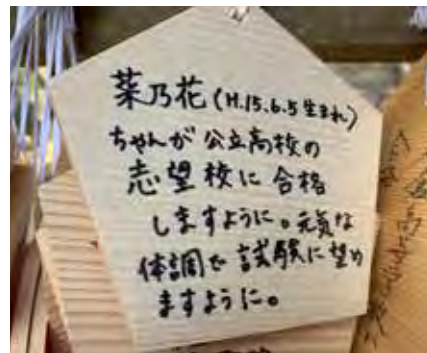 菜乃花(H.15.6.5生まれ)
ちゃんが公立高校の
志望校に合格
しますように。元気な
体調で試験に望め
ますように。